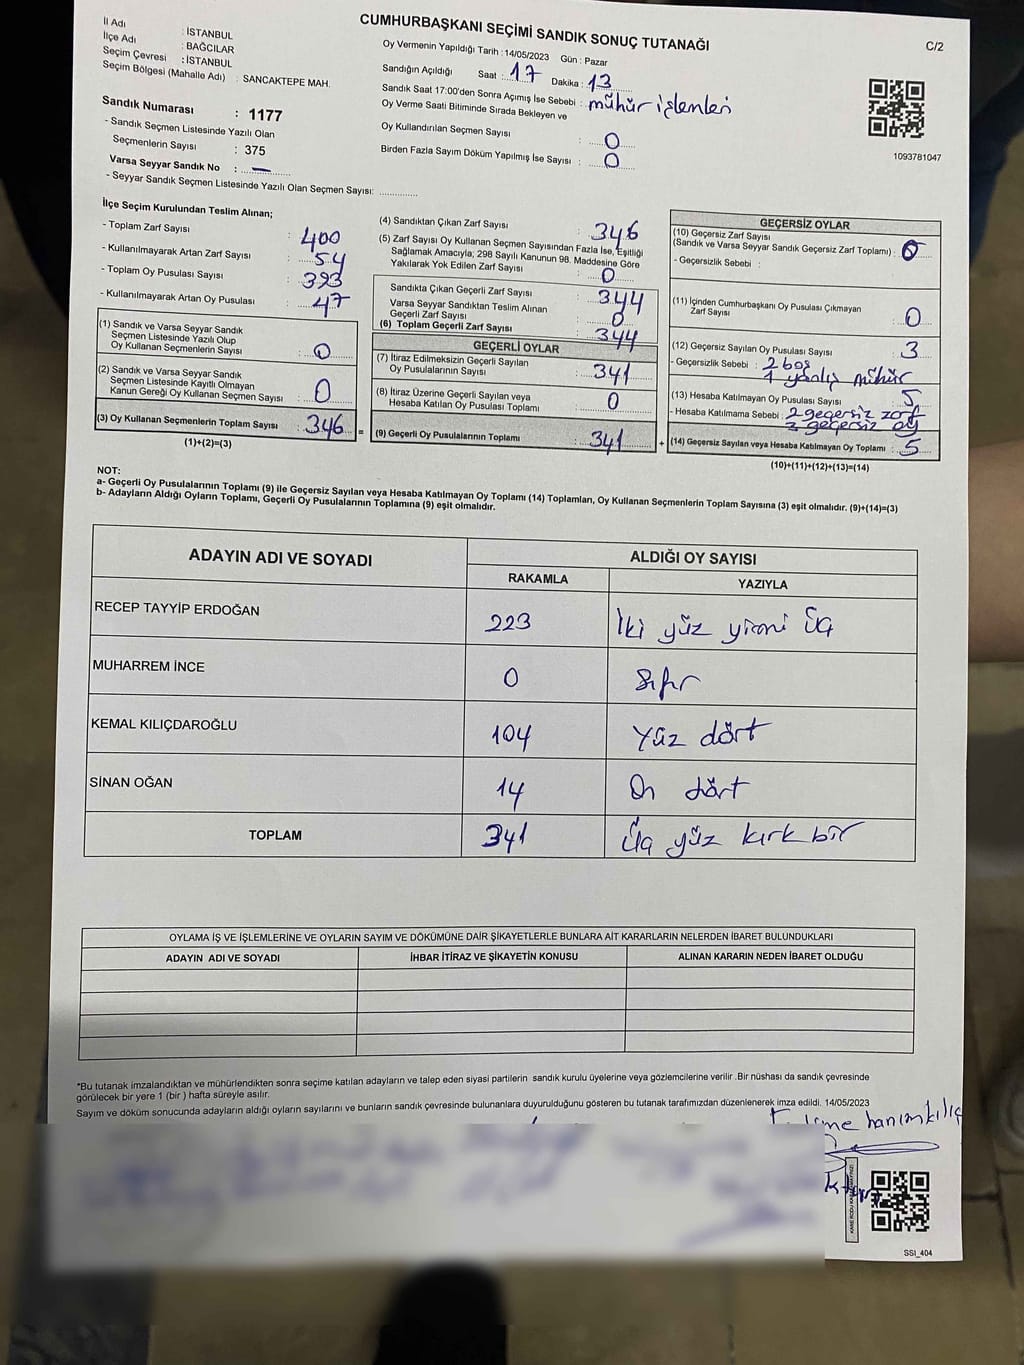 CUMHURBAŞKANI SEÇİMİ SANDIK SONUÇ TUTANAĞI
C/2
İl Adı : İSTANBUL
İlçe Adı : BAĞCILAR
Seçim Çevresi : İSTANBUL
Seçim Bölgesi (Mahalle Adı) : SANCAKTEPE MAH.
Sandık Numarası : 1177
- Sandık Seçmen Listesinde Yazılı Olan
Seçmenlerin Sayısı : 375
Varsa Seyyar Sandık No : —
- Seyyar Sandık Seçmen Listesinde Yazılı Olan Seçmen Sayısı: ..............
Oy Vermenin Yapıldığı Tarih : 14/05/2023 Gün : Pazar
Sandığın Açıldığı Saat : 17 Dakika : 13
Sandık Saat 17:00'den Sonra Açımış İse Sebebi : mühür işlemleri
Oy Verme Saati Bitiminde Sırada Bekleyen ve
Oy Kullandırılan Seçmen Sayısı : 0
Birden Fazla Sayım Döküm Yapılmış İse Sayısı : 0
1093781047
İlçe Seçim Kurulundan Teslim Alınan;
- Toplam Zarf Sayısı : 400
- Kullanılmayarak Artan Zarf Sayısı : 54
- Toplam Oy Pusulası Sayısı : 393
- Kullanılmayarak Artan Oy Pusulası : 47
(1) Sandık ve Varsa Seyyar Sandık
Seçmen Listesinde Yazılı Olup
Oy Kullanan Seçmenlerin Sayısı : 0
(2) Sandık ve Varsa Seyyar Sandık
Seçmen Listesinde Kayıtlı Olmayan
Kanun Gereği Oy Kullanan Seçmen Sayısı : 0
(3) Oy Kullanan Seçmenlerin Toplam Sayısı : 346 =
(1)+(2)=(3)
(4) Sandıktan Çıkan Zarf Sayısı : 346
(5) Zarf Sayısı Oy Kullanan Seçmen Sayısından Fazla İse, Eşitliği
Sağlamak Amacıyla; 298 Sayılı Kanunun 98. Maddesine Göre
Yakılarak Yok Edilen Zarf Sayısı : 0
Sandıkta Çıkan Geçerli Zarf Sayısı : 344
Varsa Seyyar Sandıktan Teslim Alınan
Geçerli Zarf Sayısı : 0
(6) Toplam Geçerli Zarf Sayısı : 344
GEÇERLİ OYLAR
(7) İtiraz Edilmeksizin Geçerli Sayılan
Oy Pusulalarının Sayısı : 341
(8) İtiraz Üzerine Geçerli Sayılan veya
Hesaba Katılan Oy Pusulası Toplamı : 0
(9) Geçerli Oy Pusulalarının Toplamı : 341 +
GEÇERSİZ OYLAR
(10) Geçersiz Zarf Sayısı
(Sandık ve Varsa Seyyar Sandık Geçersiz Zarf Toplamı) :
- Geçersizlik Sebebi :
(11) İçinden Cumhurbaşkanı Oy Pusulası Çıkmayan
Zarf Sayısı : 0
(12) Geçersiz Sayılan Oy Pusulası Sayısı : 3
- Geçersizlik Sebebi : 2 boş
1 yanlış mühür
(13) Hesaba Katılmayan Oy Pusulası Sayısı : 5
- Hesaba Katılmama Sebebi : 2 geçersiz zarf
3 geçersiz oy
(14) Geçersiz Sayılan veya Hesaba Katılmayan Oy Toplamı : 5
(10)+(11)+(12)+(13)=(14)
NOT:
a- Geçerli Oy Pusulalarının Toplamı (9) ile Geçersiz Sayılan veya Hesaba Katılmayan Oy Toplamı (14) Toplamları, Oy Kullanan Seçmenlerin Toplam Sayısına (3) eşit olmalıdır. (9)+(14)=(3)
b- Adayların Aldığı Oyların Toplamı, Geçerli Oy Pusulalarının Toplamına (9) eşit olmalıdır.
ADAYIN ADI VE SOYADI ALDIĞI OY SAYISI
RAKAMLA YAZIYLA
RECEP TAYYİP ERDOĞAN 223 İki yüz yirmi üç
MUHARREM İNCE 0 Sıfır
KEMAL KILIÇDAROĞLU 104 Yüz dört
SİNAN OĞAN 14 On dört
TOPLAM 341 Üç yüz kırk bir
OYLAMA İŞ VE İŞLEMLERİNE VE OYLARIN SAYIM VE DÖKÜMÜNE DAİR ŞİKAYETLERLE BUNLARA AİT KARARLARIN NELERDEN İBARET BULUNDUKLARI
ADAYIN ADI VE SOYADI İHBAR İTİRAZ VE ŞİKAYETİN KONUSU ALINAN KARARIN NEDEN İBARET OLDUĞU
*Bu tutanak imzalandıktan ve mühürlendikten sonra seçime katılan adayların ve talep eden siyasi partilerin sandık kurulu üyelerine veya gözlemcilerine verilir .Bir nüshası da sandık çevresinde
görülecek bir yere 1 (bir ) hafta süreyle asılır.
Sayım ve döküm sonucunda adayların aldığı oyların sayılarını ve bunların sandık çevresinde bulunanlara duyurulduğunu gösteren bu tutanak tarafımızdan düzenlenerek imza edildi. 14/05/2023
hanımkılıç
SSİ_404